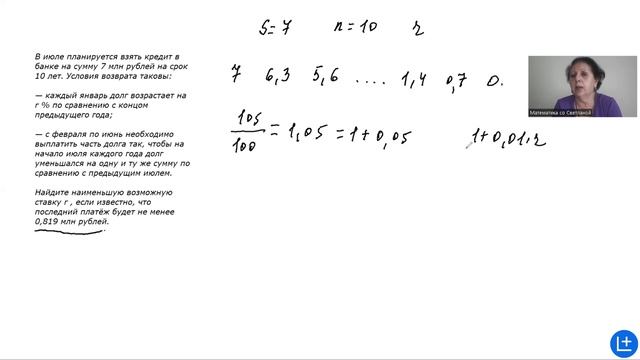 S=7 n=10 r
В июле планируется взять кредит в
банке на сумму 7 млн рублей на срок
10 лет. Условия возврата таковы:
— каждый январь долг возрастает на
r % по сравнению с концом
предыдущего года;
— с февраля по июнь необходимо
выплатить часть долга так, чтобы на
начало июля каждого года долг
уменьшался на одну и ту же сумму по
сравнению с предыдущим июлем.
Найдите наименьшую возможную
ставку r , если известно, что
последний платёж будет не менее
0,819 млн рублей.
7 6,3 5,6 .... 1,4 0,7 0.
105/100 = 1,05 = 1+0,05 1+0,01·r
Математика со Светланой